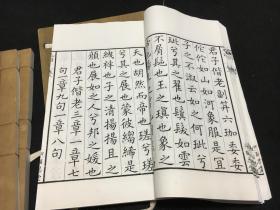 君子偕老副笄六珈委委
佗佗如山如河象服是宜
子之不淑云如之何玼兮
玼兮其之翟也鬒髮如雲
不屑髢也玉之瑱也象
天也胡然而帝也瑳兮瑳
兮其之展也蒙彼縐絺是
紲袢也子之清揚揚且之
顏也展如之人兮邦之媛也
君子偕老三章一章七
句一章九句一章八句